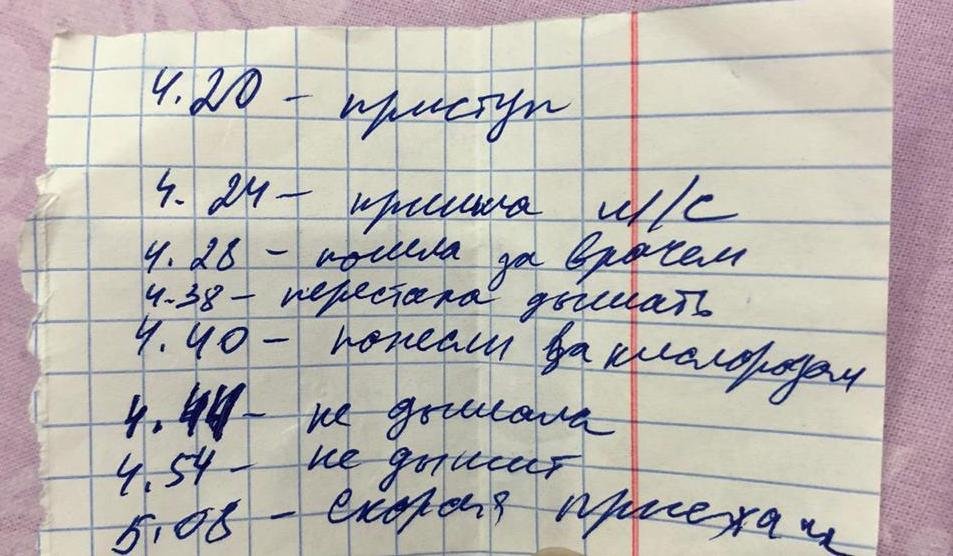 4.20 - приступ
4.24 - пришла м/с
4.28 - пошла за врачем
4.38 - перестала дышать
4.40 - понесли за кислородом
4.44 - не дышала
4.54 - не дышит
5.08 - скорая приехала